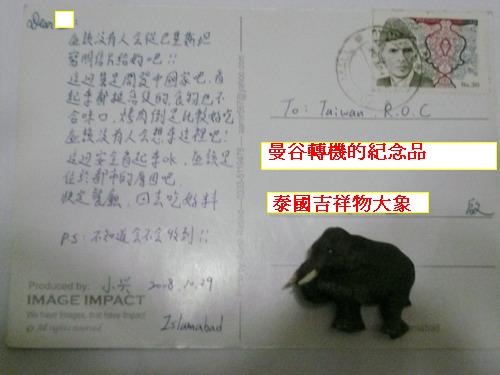 Dear
應該沒有人會從巴基斯坦
寄明信片給妳吧!!
這邊算是開發中國家吧,看
起來都挺落後的,食物也不
合味口,烤肉倒是比較好吃
應該沒有人會想來這裡吧!
這邊安全看起來ok,應該是
住於都市的原因吧,
決定餐廳,回去吃好料
PS:不知道會不會收到!!
小兴 2008.10.29
Islamabad
Produced by:
IMAGE IMPACT
We have Images, that have Impact!
© All rights reserved
Rs.
To: Taiwan R.O.C
曼谷轉機的紀念品
啟
泰國吉祥物大象